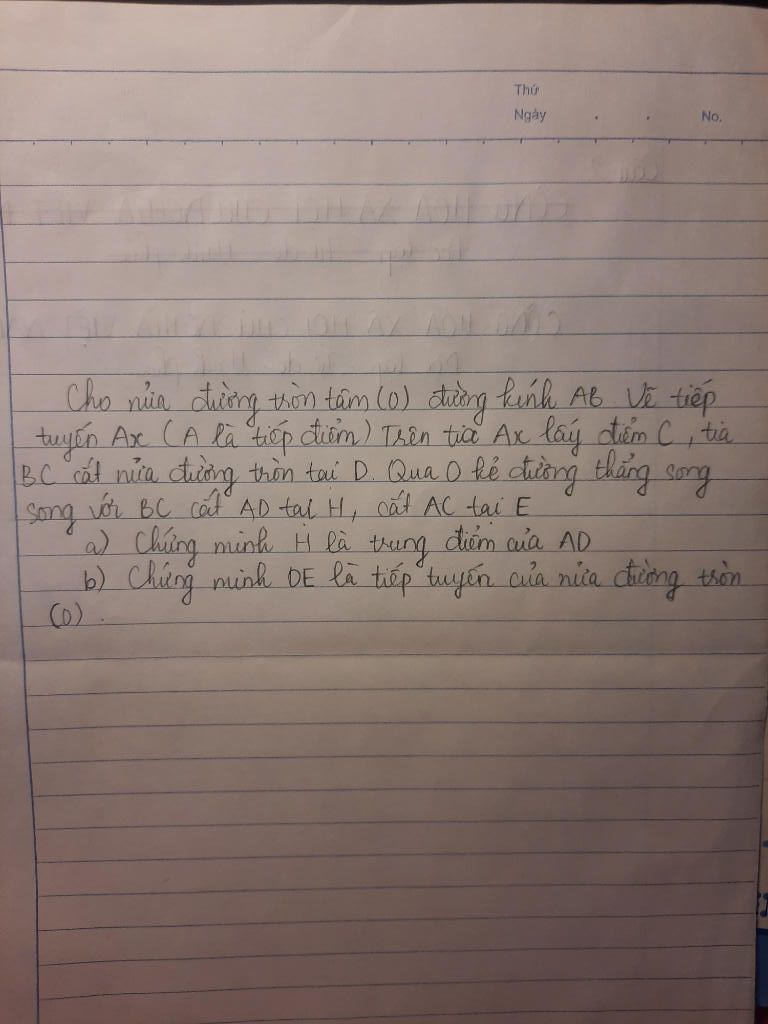 Thứ
Ngày . . No.
Cho nửa đường tròn tâm (O) đường kính AB Vẽ tiếp
tuyến Ax (A là tiếp điểm) Trên tia Ax lấy điểm C, tia
BC cắt nửa đường tròn tại D. Qua O kẻ đường thẳng song
song với BC cắt AD tại H, cắt AC tại E
a) Chứng minh H là trung điểm của AD
b) Chứng minh DE là tiếp tuyến của nửa đường tròn
(O).